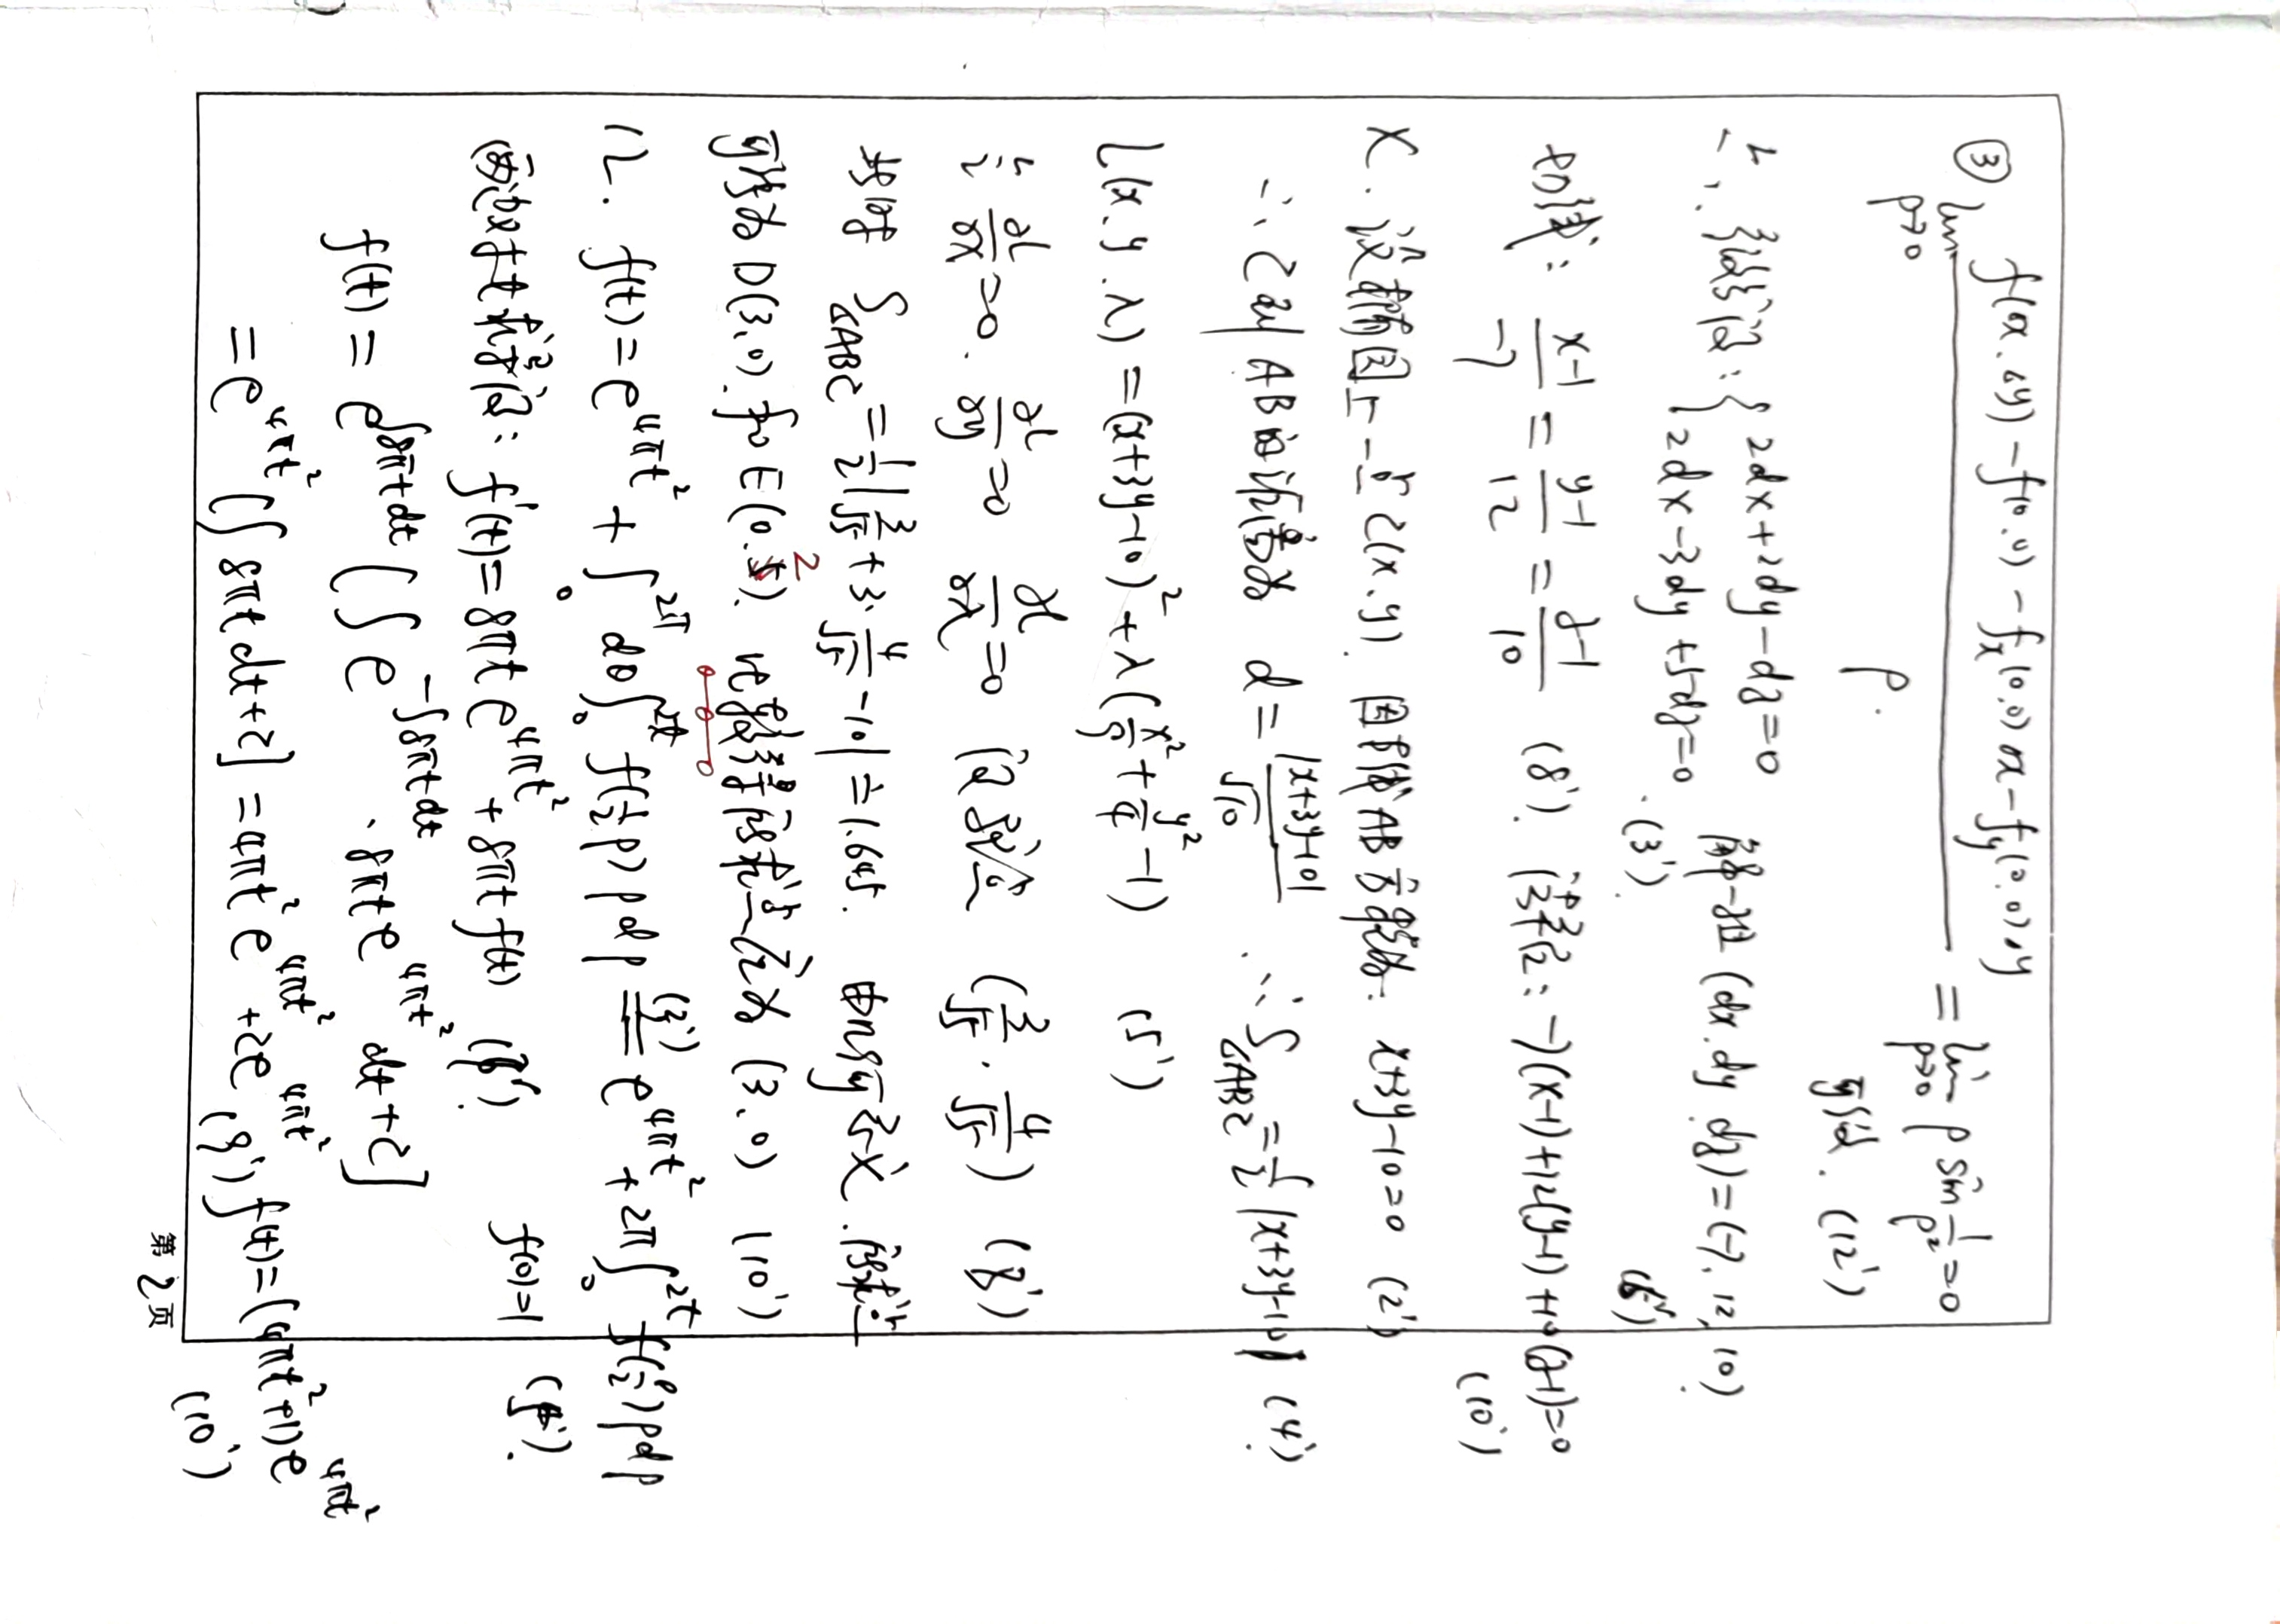 ③ lim ρ→0 (f(x,y) − f(0,0) − fx(0,0)x − fy(0,0)y) / ρ = lim ρ→0 ρ sin 1/ρ² = 0
可微. (12')
{ 2dx+2dy−dz=0
2dx−3dy+5dz=0 . (3') 解一组 (dx, dy, dz) = (−7, 12, 10). (6')
切线: (x−1)/−7 = (y−1)/12 = (z−1)/10 (8'). 法平面: −7(x−1)+12(y−1)+10(z−1)=0 (10')
X. 设椭圆上一点 C(x,y). 因 AB 方程为: x+3y−10=0 (2')
∴ C到AB的距离为 d = |x+3y−10| / √10 ∴ S△ABC = 1/2 |x+3y−10| (4')
L(x,y,λ) = (x+3y−10)² + λ(x²/9 + y²/4 − 1) (5')
∂L/∂x=0, ∂L/∂y=0 ∂L/∂λ=0 得驻点 (3/√5, 4/√5) (8')
此时 S△ABC = 1/2 |3/√5 + 3·4/√5 − 10| ≐ 1.645. 由 意义. 所求点
可能为 D(3,0), 和 E(0,2). 比较 可得所求点 为 (3,0) (10')
12. f(t) = e^{4πt²} + ∫₀^{2π} dθ ∫₀^{2t} f(1/2 ρ) ρ dρ =(3') e^{4πt²} + 2π ∫₀^{2t} f(ρ/2) ρ dρ
两边对t求导得: f'(t) = 8πt e^{4πt²} + 8πt f(t) (6'). f(0)=1
f(t) = e^{∫8πt dt} [∫ e^{−∫8πt dt} · 8πt e^{4πt²} dt + C]
= e^{4πt²} [∫ 8πt dt + C] = 4πt² e^{4πt²} + C e^{4πt²} (9') f(t) = (4πt²+1) e^{4πt²} (10')
第 2 页